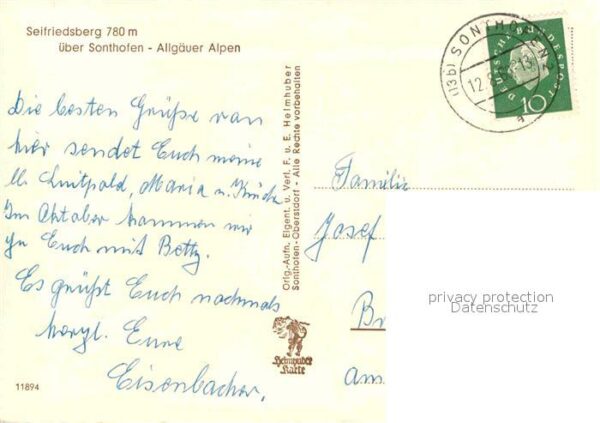 Seifriedsberg 780 m
über Sonthofen - Allgäuer Alpen
Die besten Grüße von
hier sendet Euch meine
ll. Luitpold, Maria u.
Im Oktober kommen wir
zu Euch mit Betty.
Es grüßt Euch nochmals
herzl. Eure
Eisenbacher.
11894
Orig.-Aufn. Eigent. u. Verl. F. u. E. Heimhuber
Sonthofen-Oberstdorf - Alle Rechte vorbehalten
Heimhuber
Karte
(13b) SONTHOFEN
12.
a
DEUTSCHE BUNDESPOST
10
Familie
Josef
privacy protection
Datenschutz
B
am